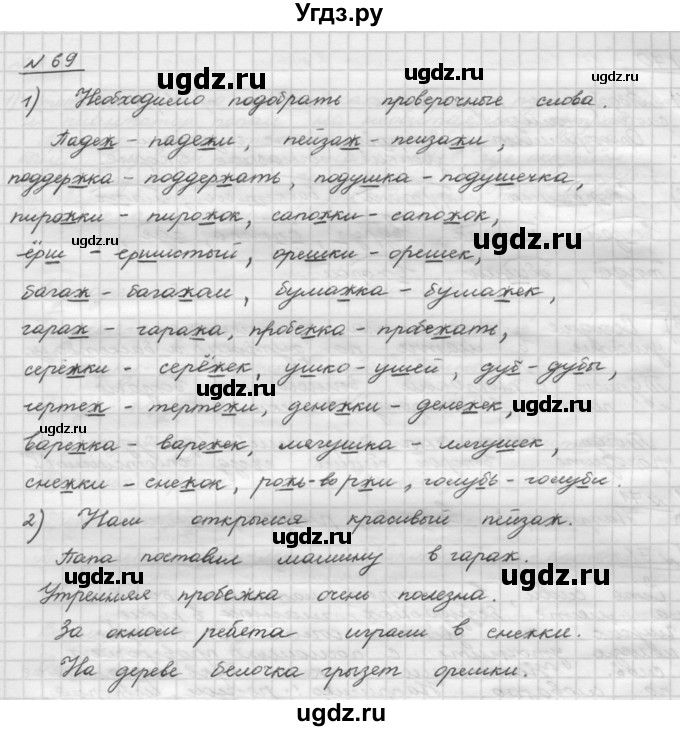 Угдз.ру
№ 69
1) Необходимо подобрать проверочные слова.
Падеж - падежи, пейзаж - пейзажи,
поддержка - поддержать, подушка - подушечка,
пирожки - пирожок, сапожки - сапожок,
ёрш - ершистый, орешки - орешек,
багаж - багажом, бумажка - бумажек,
гараж - гаража, пробежка - пробежать,
серёжки - серёжек, ушко - ушей, дуб - дубы,
чертеж - чертежи, денежки - денежек,
варежка - варежек, лягушка - лягушек,
снежки - снежок, рожь - во ржи, голубь - голуби.
2) Нам открылся красивый пейзаж.
Папа поставил машину в гараж.
Утренняя пробежка очень полезна.
За окном ребята играли в снежки.
На дереве белочка грызет орешки.
ugdz.ru
ugdz.ru
ugdz.ru
ugdz.ru
ugdz.ru
ugdz.ru
ugdz.ru
ugdz.ru
ugdz.ru
ugdz.ru
ugdz.ru
ugdz.ru
ugdz.ru